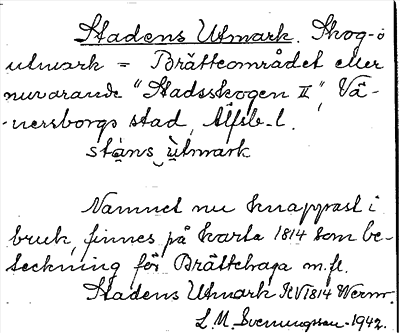 Stadens Utmark. Skog o
utmark = Brätteområdet eller
nuvarande "Stadsskogen II", Vä-
-nersborgs stad, Älfsb. l.
stans utmark
Namnet nu knappast i
bruk, finnes på karta 1814 som be-
teckning för Brättehaga m.fl.
Stadens Utmark 1814 Werm.
L. M. Svenungsson - 1942.